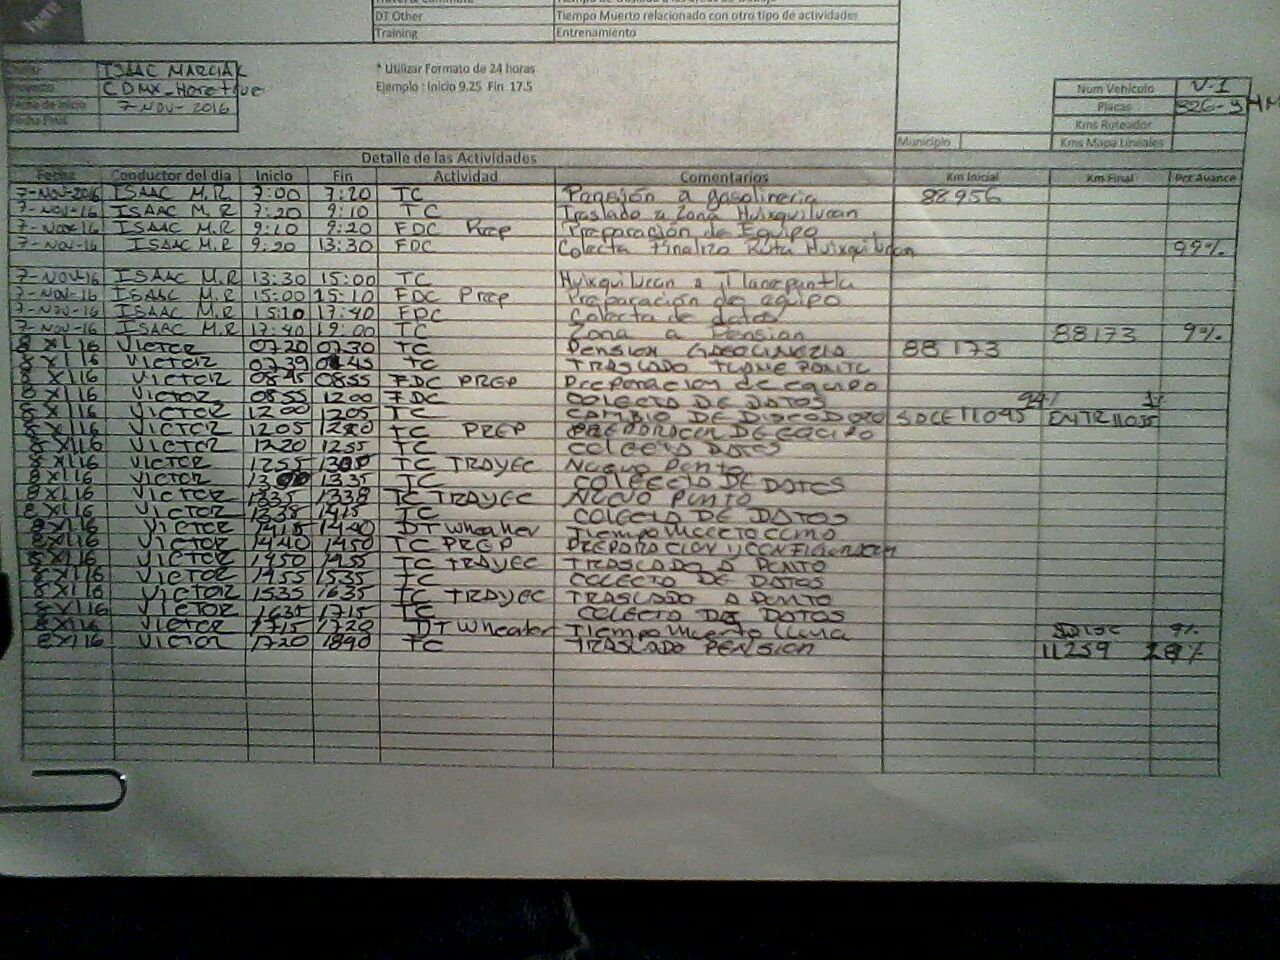 DT Other Tiempo Muerto relacionado con otro tipo de actividades
Training Entrenamiento
ISAAC MARCIAL
CDMX-
Fecha de Inicio 7-NOV-2016
Fecha Final
* Utilizar Formato de 24 horas
Ejemplo : Inicio 9.25 Fin 17.5
Num Vehículo V-1
Placas
Kms Ruteador
Municipio Kms Mapa Lineales
Detalle de las Actividades
Fecha Conductor del dia Inicio Fin Actividad Comentarios Km Inicial Km Final Pct Avance
7-Nov-2016 ISAAC M.R 7:00 7:20 TC Pensión a gasolineria 88956
7-Nov-16 ISAAC M.R 7:20 9:10 TC Traslado a Zona Huixquilucan
7-Nov-16 ISAAC M.R 9:10 9:20 FDC Prep Preparación de Equipo
7-Nov-16 ISAAC M.R 9:20 13:30 FDC Colecta Finalizo Ruta Huixquilucan 99%
7-NOV-16 ISAAC M.R 13:30 15:00 TC Huixquilucan a Tlanepantla
7-Nov-16 ISAAC M.R 15:00 15:10 FDC Prep Preparación de equipo
7-Nov-16 ISAAC M.R 15:10 17:40 FDC Colecta de datos
7-Nov-16 ISAAC M.R 17:40 19:00 TC Zona a Pension 88173 9%
8 XI 16 VICTOR 0720 0730 TC PENSION GASOLINERIA 88173
8 XI 16 VICTOR 0739 TC TRASLADO
8 XI 16 VICTOR 0845 0855 FDC PREP Preparacion de equipo
8 XI 16 VICTOR 0855 1200 FDC COLECTA DE DATOS
8 XI 16 VICTOR 1200 1205 TC CAMBIO DE DISCO DURO
8 XI 16 VICTOR 1205 TC PREP DE EQUIPO
8 XI 16 VICTOR 1220 1255 TC COLECTA DATOS
8 XI 16 VICTOR 1255 TC TRAYEC Nuevo Punto
8 XI 16 VICTOR 1335 TC COLECTA DE DATOS
8 XI 16 VICTOR 1335 1338 TC TRAYEC NUEVO PUNTO
8 XI 16 VICTOR 1338 1415 TC COLECTA DE DATOS
8 XI 16 VICTOR 1415 1440 DT Wheather Tiempo Muerto
8 XI 16 VICTOR 1440 1450 TC PREP PREPARACION Y
8 XI 16 VICTOR 1450 1455 TC TRAYEC TRASLADO A PUNTO
8 XI 16 VICTOR 1455 1535 TC COLECTA DE DATOS
8 XI 16 VICTOR 1535 1635 TC TRAYEC TRASLADO A PUNTO
8 XI 16 VICTOR 1635 1715 TC COLECTA DE DATOS
8 XI 16 VICTOR 1715 1720 DT Wheater Tiempo Muerto lluvia 9%
8 XI 16 VICTOR 1720 TC TRASLADO PENSION 11259